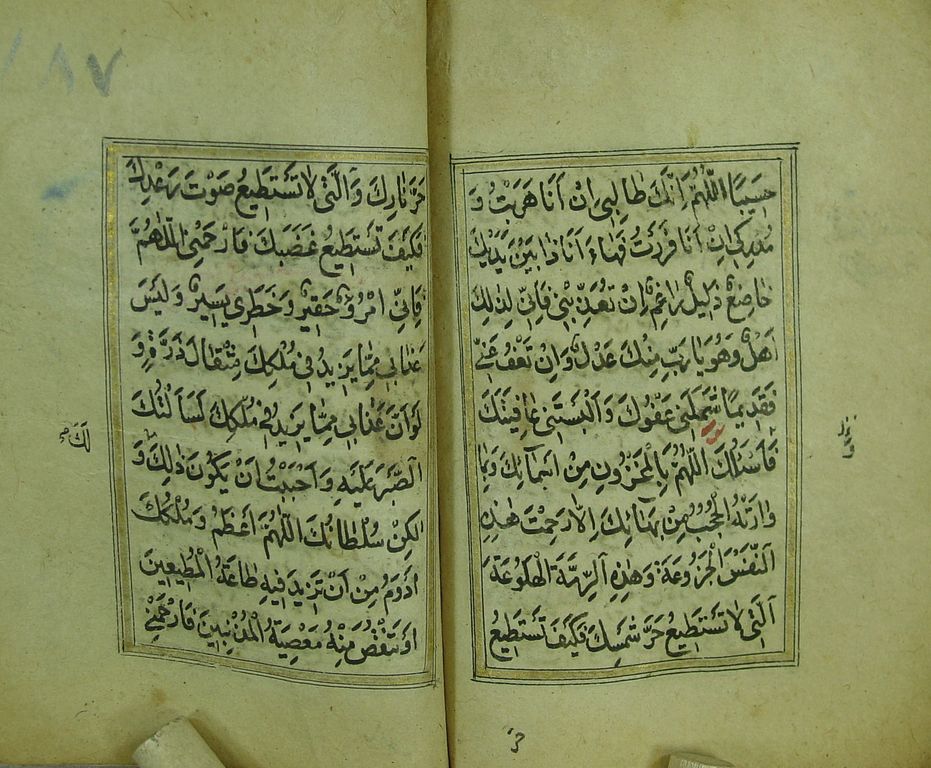 حَسيبًا اَللّهُمَّ اِنَّكَ طالِبي اِنْ اَنَا هَرَبْتُ وَ
مُدْرِكي اِنْ اَنَا فَرَرْتُ فَهاءَ اَنَا ذا بَيْنَ يَدَيْكَ
خاضِعٌ ذَليلٌ راغِمٌ اِنْ تُعَذِّبْني فَاِنّي لِذلِكَ
اَهْلٌ وَهُوَ يا رَبِّ مِنْكَ عَدْلٌ وَاِنْ تَعْفُ عَنّي
فَقَديمًا شَمَلَني عَفْوُكَ وَاَلْبَسْتَني عافِيَتَكَ
فَاَسْئَلُكَ اللّهُمَّ بِالْمَخْزُونِ مِنْ اَسْمائِكَ وَبِما
وارَتْهُ الْحُجُبُ مِنْ بَهائِكَ اِلّا رَحِمْتَ هذِهِ
النَّفْسَ الْجَزُوعَةَ وَهذِهِ الرِّمَّةَ الْهَلُوعَةَ
اَلَّتي لا تَسْتَطيعُ حَرَّ شَمْسِكَ فَكَيْفَ تَسْتَطيعُ
حَرَّ نارِكَ وَالَّتي لا تَسْتَطيعُ صَوْتَ رَعْدِكَ
فَكَيْفَ تَسْتَطيعُ غَضَبَكَ فَارْحَمْنِي اللّهُمَّ
فَاِنّي امْرُؤٌ حَقيرٌ وَخَطَري يَسيرٌ وَلَيْسَ
عَذابي مِمّا يَزيدُ في مُلْكِكَ مِثْقالَ ذَرَّةٍ وَ
لَوْ اَنَّ عَذابي مِمّا يَزيدُ في مُلْكِكَ لَسَاَلْتُكَ
الصَّبْرَ عَلَيْهِ وَاَحْبَبْتُ اَنْ يَكُونَ ذلِكَ وَ
لكِنْ سُلْطانُكَ اللّهُمَّ اَعْظَمُ وَمُلْكُكَ
اَدْوَمُ مِنْ اَنْ تَزيدَ فيهِ طاعَةُ الْمُطيعينَ
اَوْ تَنْقُصَ مِنْهُ مَعْصِيَةُ الْمُذْنِبينَ فَارْحَمْني
لَكَ